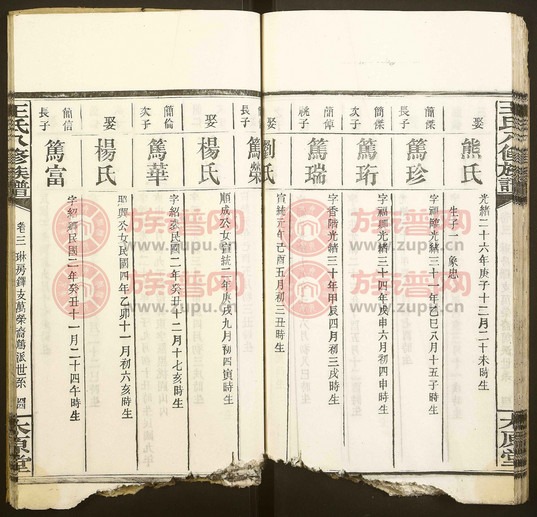 王氏八修族譜
太原堂
娶
熊氏
光緒二十六年庚子十二月二十未時生
生子一 象忠
簡傑
長子
篤珍
字福 光緒三十一年乙巳八月十五子時生
簡傑
次子
篤珩
字福 光緒三十四年戊申六月初四申時生
簡偉
祧子
篤瑞
字香階光緒三十年甲辰四月初三戌時生
娶
劉氏
宣統元年己酉五月初三丑時生
簡倫
長子
篤榮
娶
楊氏
順成公女宣統二年庚戌九月初四寅時生
簡倫
次子
篤華
字紹 民國二年癸丑十二月十七亥時生
娶
楊氏
照 公女民國四年乙卯十一月初六亥時生
簡信
長子
篤富
字紹 民國二年癸丑十一月二十四午時生
王氏八修族譜
卷三 琳房鐸支萬榮裔 派世系
太原堂
族譜网
www.zupu.cn
族譜网
www.zupu.cn
族譜网
www.zupu.cn
族譜网
www.zupu.cn